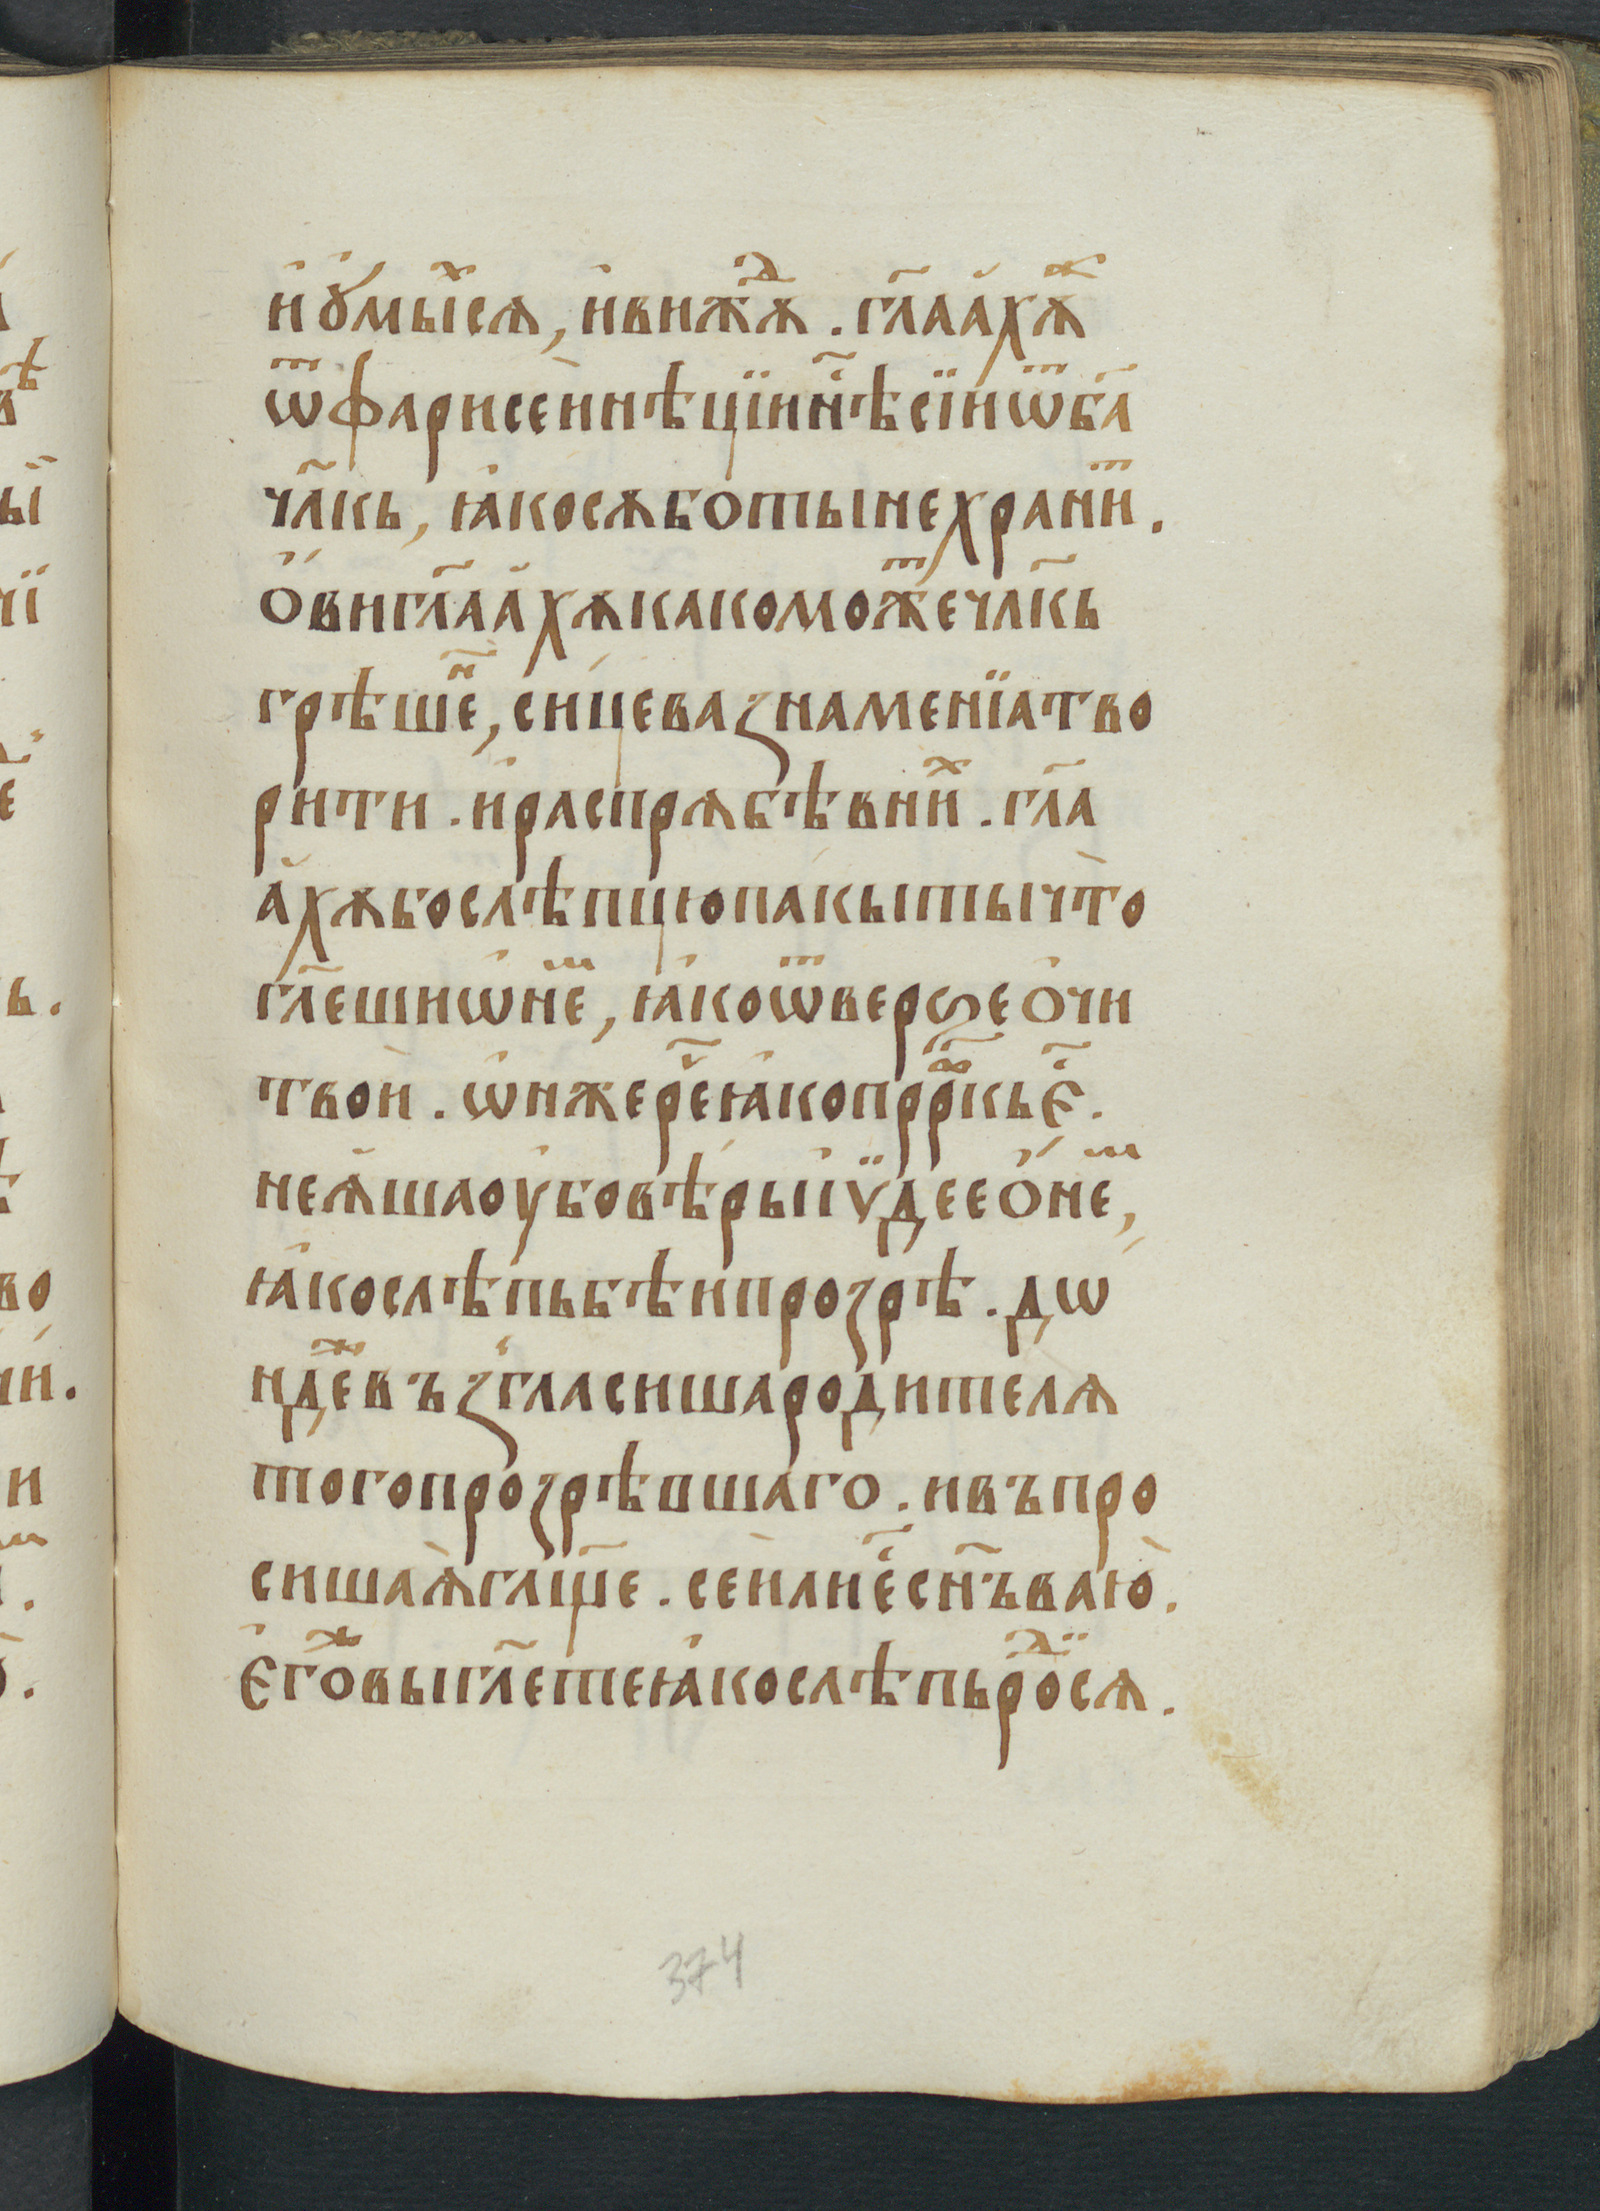 и҆ ꙋ҆мыⷯсѧ, и҆ вижⷣѫ. гл҃аа҆хѫⷤ
ѿ фарисеи нѣцїи нⷭ҇ѣ сїи ѿ б҃а
чл҃кь, ꙗ҆ко сѫботы не храниⷮ.
ѻ҆ви гл҃аа҆хѫ какоможеⷮ чл҃кь
грѣшеⷩ, сицева знаменїа тво
рити. и҆ распрѧ бѣ в ниⷯ. гл҃а
а҆хѫ бо слѣпцю пакы ты что
гл҃еши ѡ҆ неⷨ, ꙗ҆ко ѿверꙅе ѻчи
твои. ѡ҆нже рече ꙗ҆ко прⷪ҇ркь є҆ⷭ.
не ꙗ҆ша оубо вѣры і҆ѵдее ѻ҆ неⷨ,
ꙗ҆ко слѣпь бѣ и прозрѣ. дѡ
ндеⷤ възгласиша родителѧ
того прозрѣвшаго. и въпро
сиша ѧ҆ гл҃ще. сеи ли є҆ⷭ сн҃ъ ваю.
є҆гоⷤ вы гл҃ете ꙗ҆ко слѣпь роⷣсѧ.
374